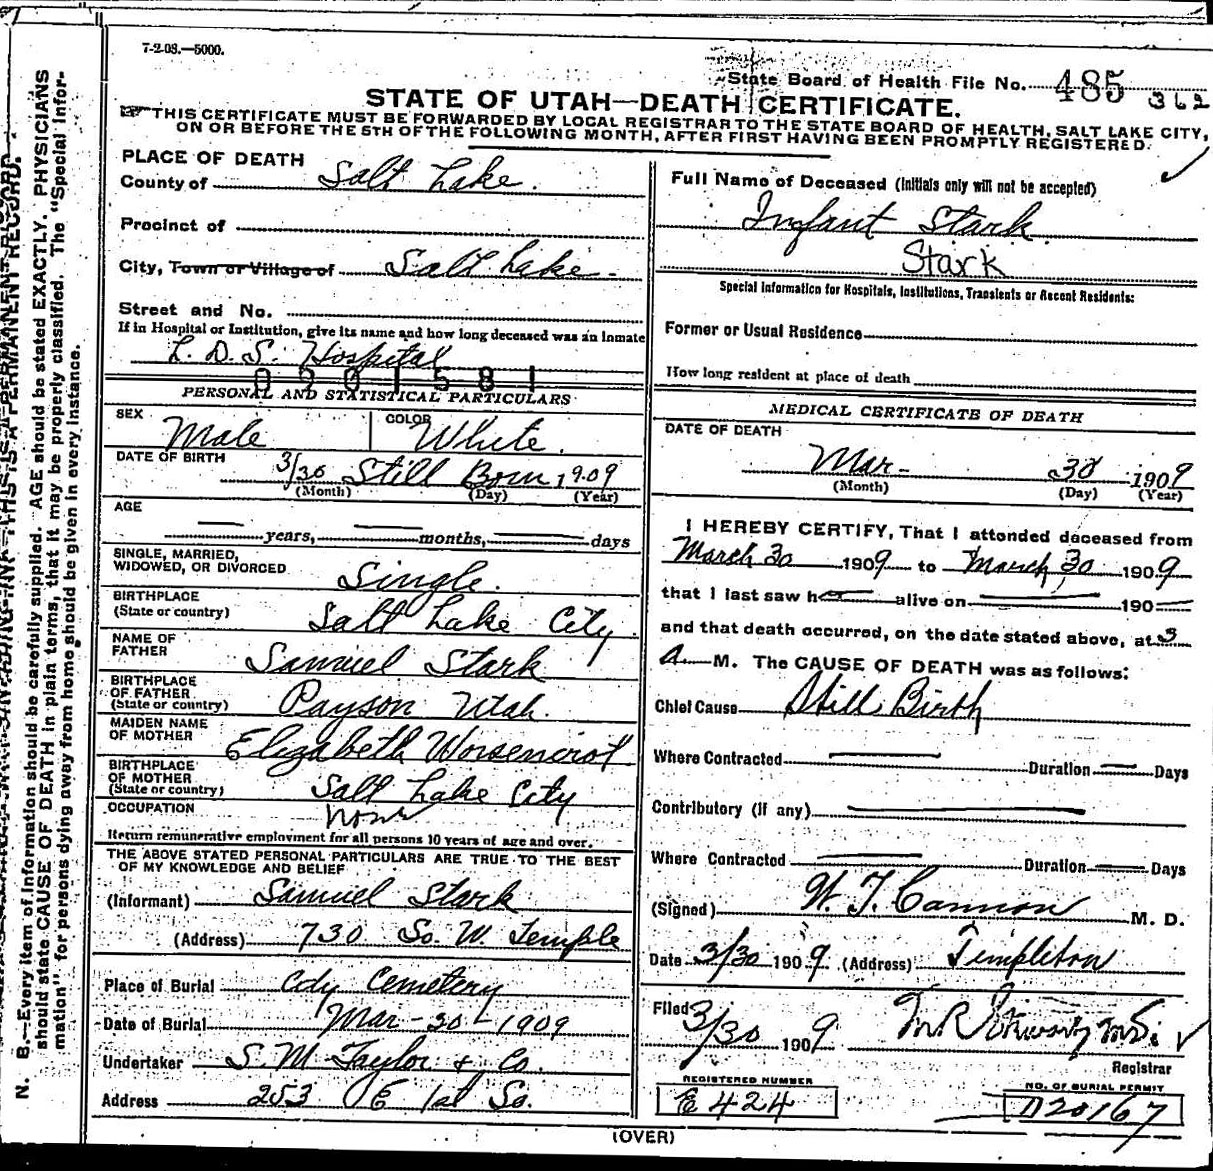 7-2-08.—5000.
State Board of Health File No. 485 362
STATE OF UTAH—DEATH CERTIFICATE.
THIS CERTIFICATE MUST BE FORWARDED BY LOCAL REGISTRAR TO THE STATE BOARD OF HEALTH, SALT LAKE CITY,
ON OR BEFORE THE 5TH OF THE FOLLOWING MONTH, AFTER FIRST HAVING BEEN PROMPTLY REGISTERED.
PLACE OF DEATH
County of Salt Lake.
Precinct of
City, Town or Village of Salt Lake.
Street and No.
If in Hospital or Institution, give its name and how long deceased was an inmate
L. D. S. Hospital
0201581
PERSONAL AND STATISTICAL PARTICULARS
SEX Male COLOR White.
DATE OF BIRTH 3/30 Still Born 1909
(Month) (Day) (Year)
AGE
— years, — months, — days
SINGLE, MARRIED,
WIDOWED, OR DIVORCED Single.
BIRTHPLACE
(State or country) Salt Lake City
NAME OF
FATHER Samuel Stark
BIRTHPLACE
OF FATHER
(State or country) Payson Utah.
MAIDEN NAME
OF MOTHER Elizabeth
BIRTHPLACE
OF MOTHER
(State or country) Salt Lake City
OCCUPATION None
Return remunerative employment for all persons 10 years of age and over.
THE ABOVE STATED PERSONAL PARTICULARS ARE TRUE TO THE BEST
OF MY KNOWLEDGE AND BELIEF
(Informant) Samuel Stark
(Address) 730 So. W. Temple
Place of Burial City Cemetery
Date of Burial Mar - 30 - 1909
Undertaker S. M. Taylor & Co.
Address 253 E 1st So.
Full Name of Deceased (Initials only will not be accepted)
Infant Stark
Stark
Special Information for Hospitals, Institutions, Transients or Recent Residents:
Former or Usual Residence
How long resident at place of death
MEDICAL CERTIFICATE OF DEATH
DATE OF DEATH
Mar - 30 1909
(Month) (Day) (Year)
I HEREBY CERTIFY, That I attended deceased from
March 30 1909 to March 30 1909
that I last saw h— alive on — 190—
and that death occurred, on the date stated above, at 3
A. M. The CAUSE OF DEATH was as follows:
Chief Cause Still Birth
Where Contracted — Duration — Days
Contributory (if any) —
Where Contracted — Duration — Days
(Signed) W. T. Cannon M. D.
Date 3/30 1909. (Address) Templeton
Filed 3/30 1909
Registrar
REGISTERED NUMBER
E 424
NO. OF BURIAL PERMIT
D20167
(OVER)
N. B.—Every item of information should be carefully supplied. AGE should be stated EXACTLY. PHYSICIANS
should state CAUSE OF DEATH in plain terms, that it may be properly classified. The "Special Infor-
mation" for persons dying away from home should be given in every instance.